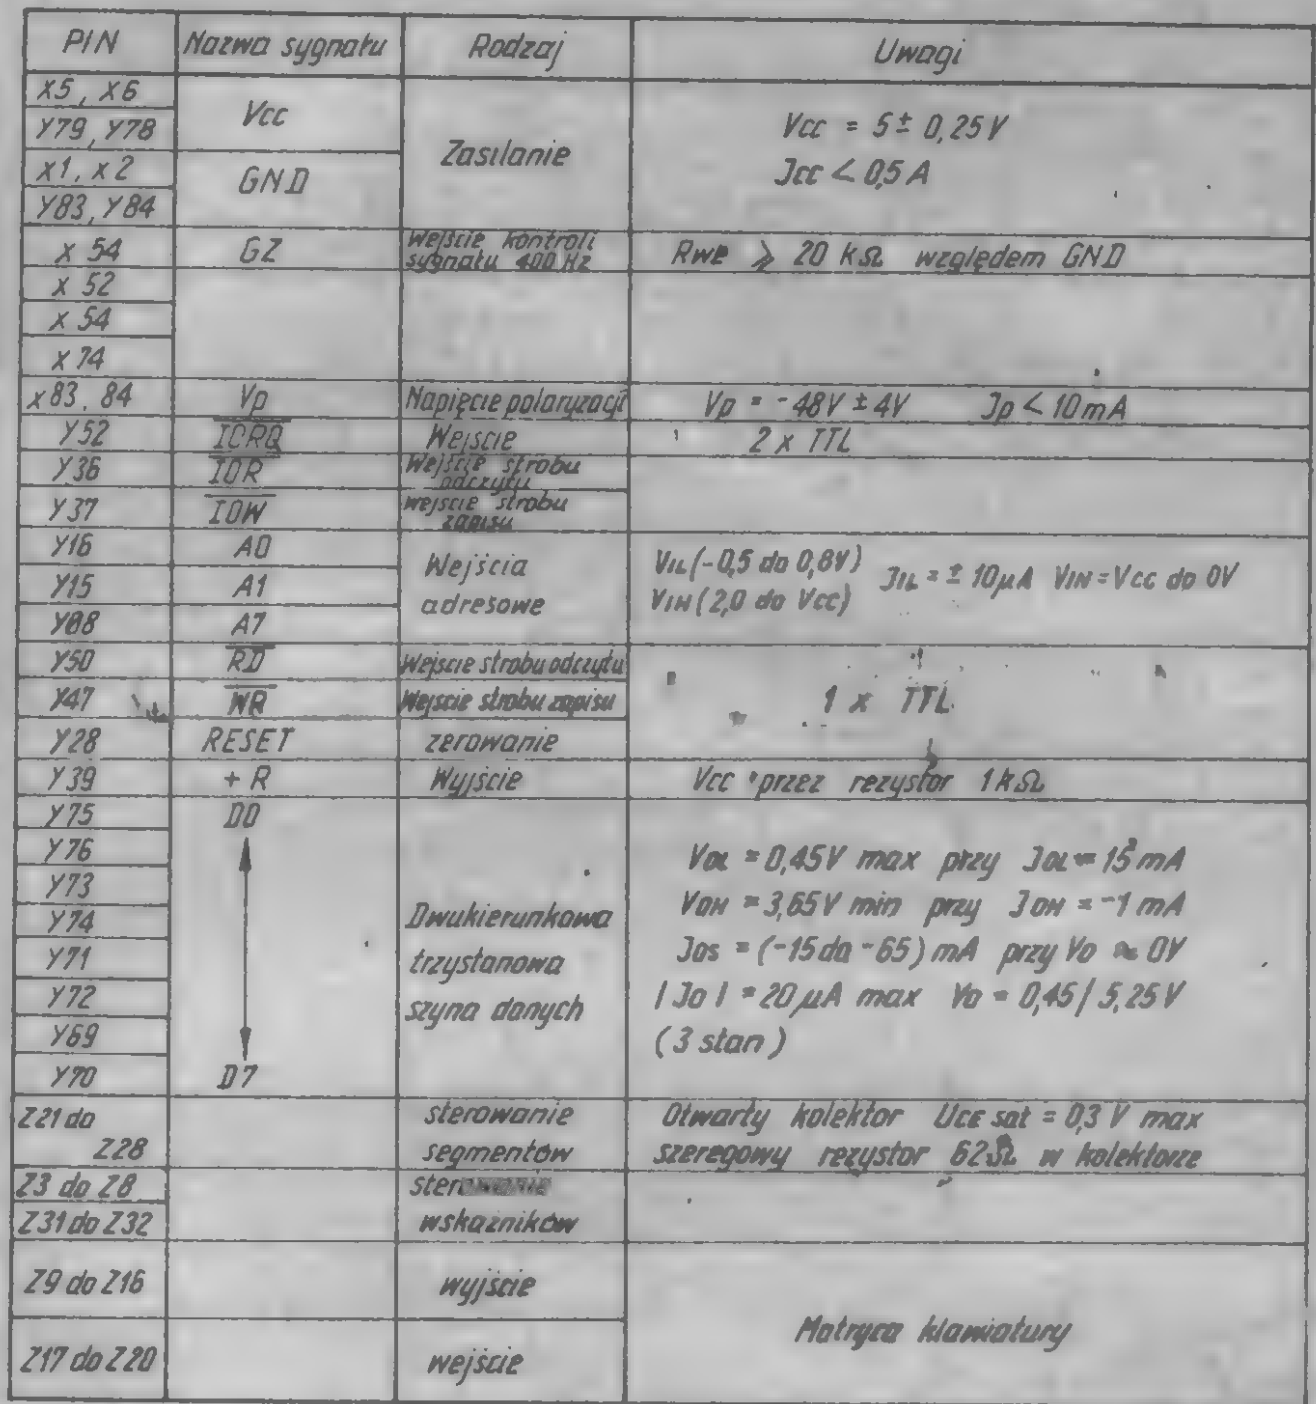 PIN Nazwa sygnału Rodzaj Uwagi
X5, X6
Vcc
Y79, Y78
Zasilanie
Vcc = 5 ± 0,25 V
Jcc < 0,5 A
X1, X2
GND
Y83, Y84
X 54 GZ Wejście kontroli
sygnału 400 Hz
Rwe ⩾ 20 kΩ względem GND
X 52
X 54
X 74
X83, 84 Vp Napięcie polaryzacji Vp = -48V ± 4V Jp < 10 mA
Y52 IORQ Wejście 2 x TTL
Y36 IOR Wejście strobu
odczytu
Y37 IOW wejście strobu
zapisu
Y16 A0
Wejścia
adresowe
VIL (-0,5 do 0,8V)
VIH (2,0 do Vcc)
JIL = ± 10μA VIN = Vcc do 0V
Y15 A1
Y08 A7
Y50 RD Wejście strobu odczytu
1 x TTL
Y47 WR Wejście strobu zapisu
Y28 RESET zerowanie
Y39 + R Wyjście Vcc przez rezystor 1kΩ
Y75 D0
Y76
Y73
Y74
Y71
Y72
Y69
Y70 D7
Dwukierunkowa
trzystanowa
szyna danych
VOL = 0,45V max przy JOL = 15 mA
VOH = 3,65V min przy JOH = -1 mA
JOS = (-15 do -65) mA przy Vo ≈ 0V
|Jo| = 20μA max Vo = 0,45 / 5,25 V
(3 stan)
Z21 do
Z28
sterowanie
segmentów
Otwarty kolektor UCE sat = 0,3 V max
szeregowy rezystor 62Ω w kolektorze
Z3 do Z8
Z31 do Z32
sterowanie
wskaźników
Z9 do Z16 wyjście
Matryca klawiatury
Z17 do Z20 wejście